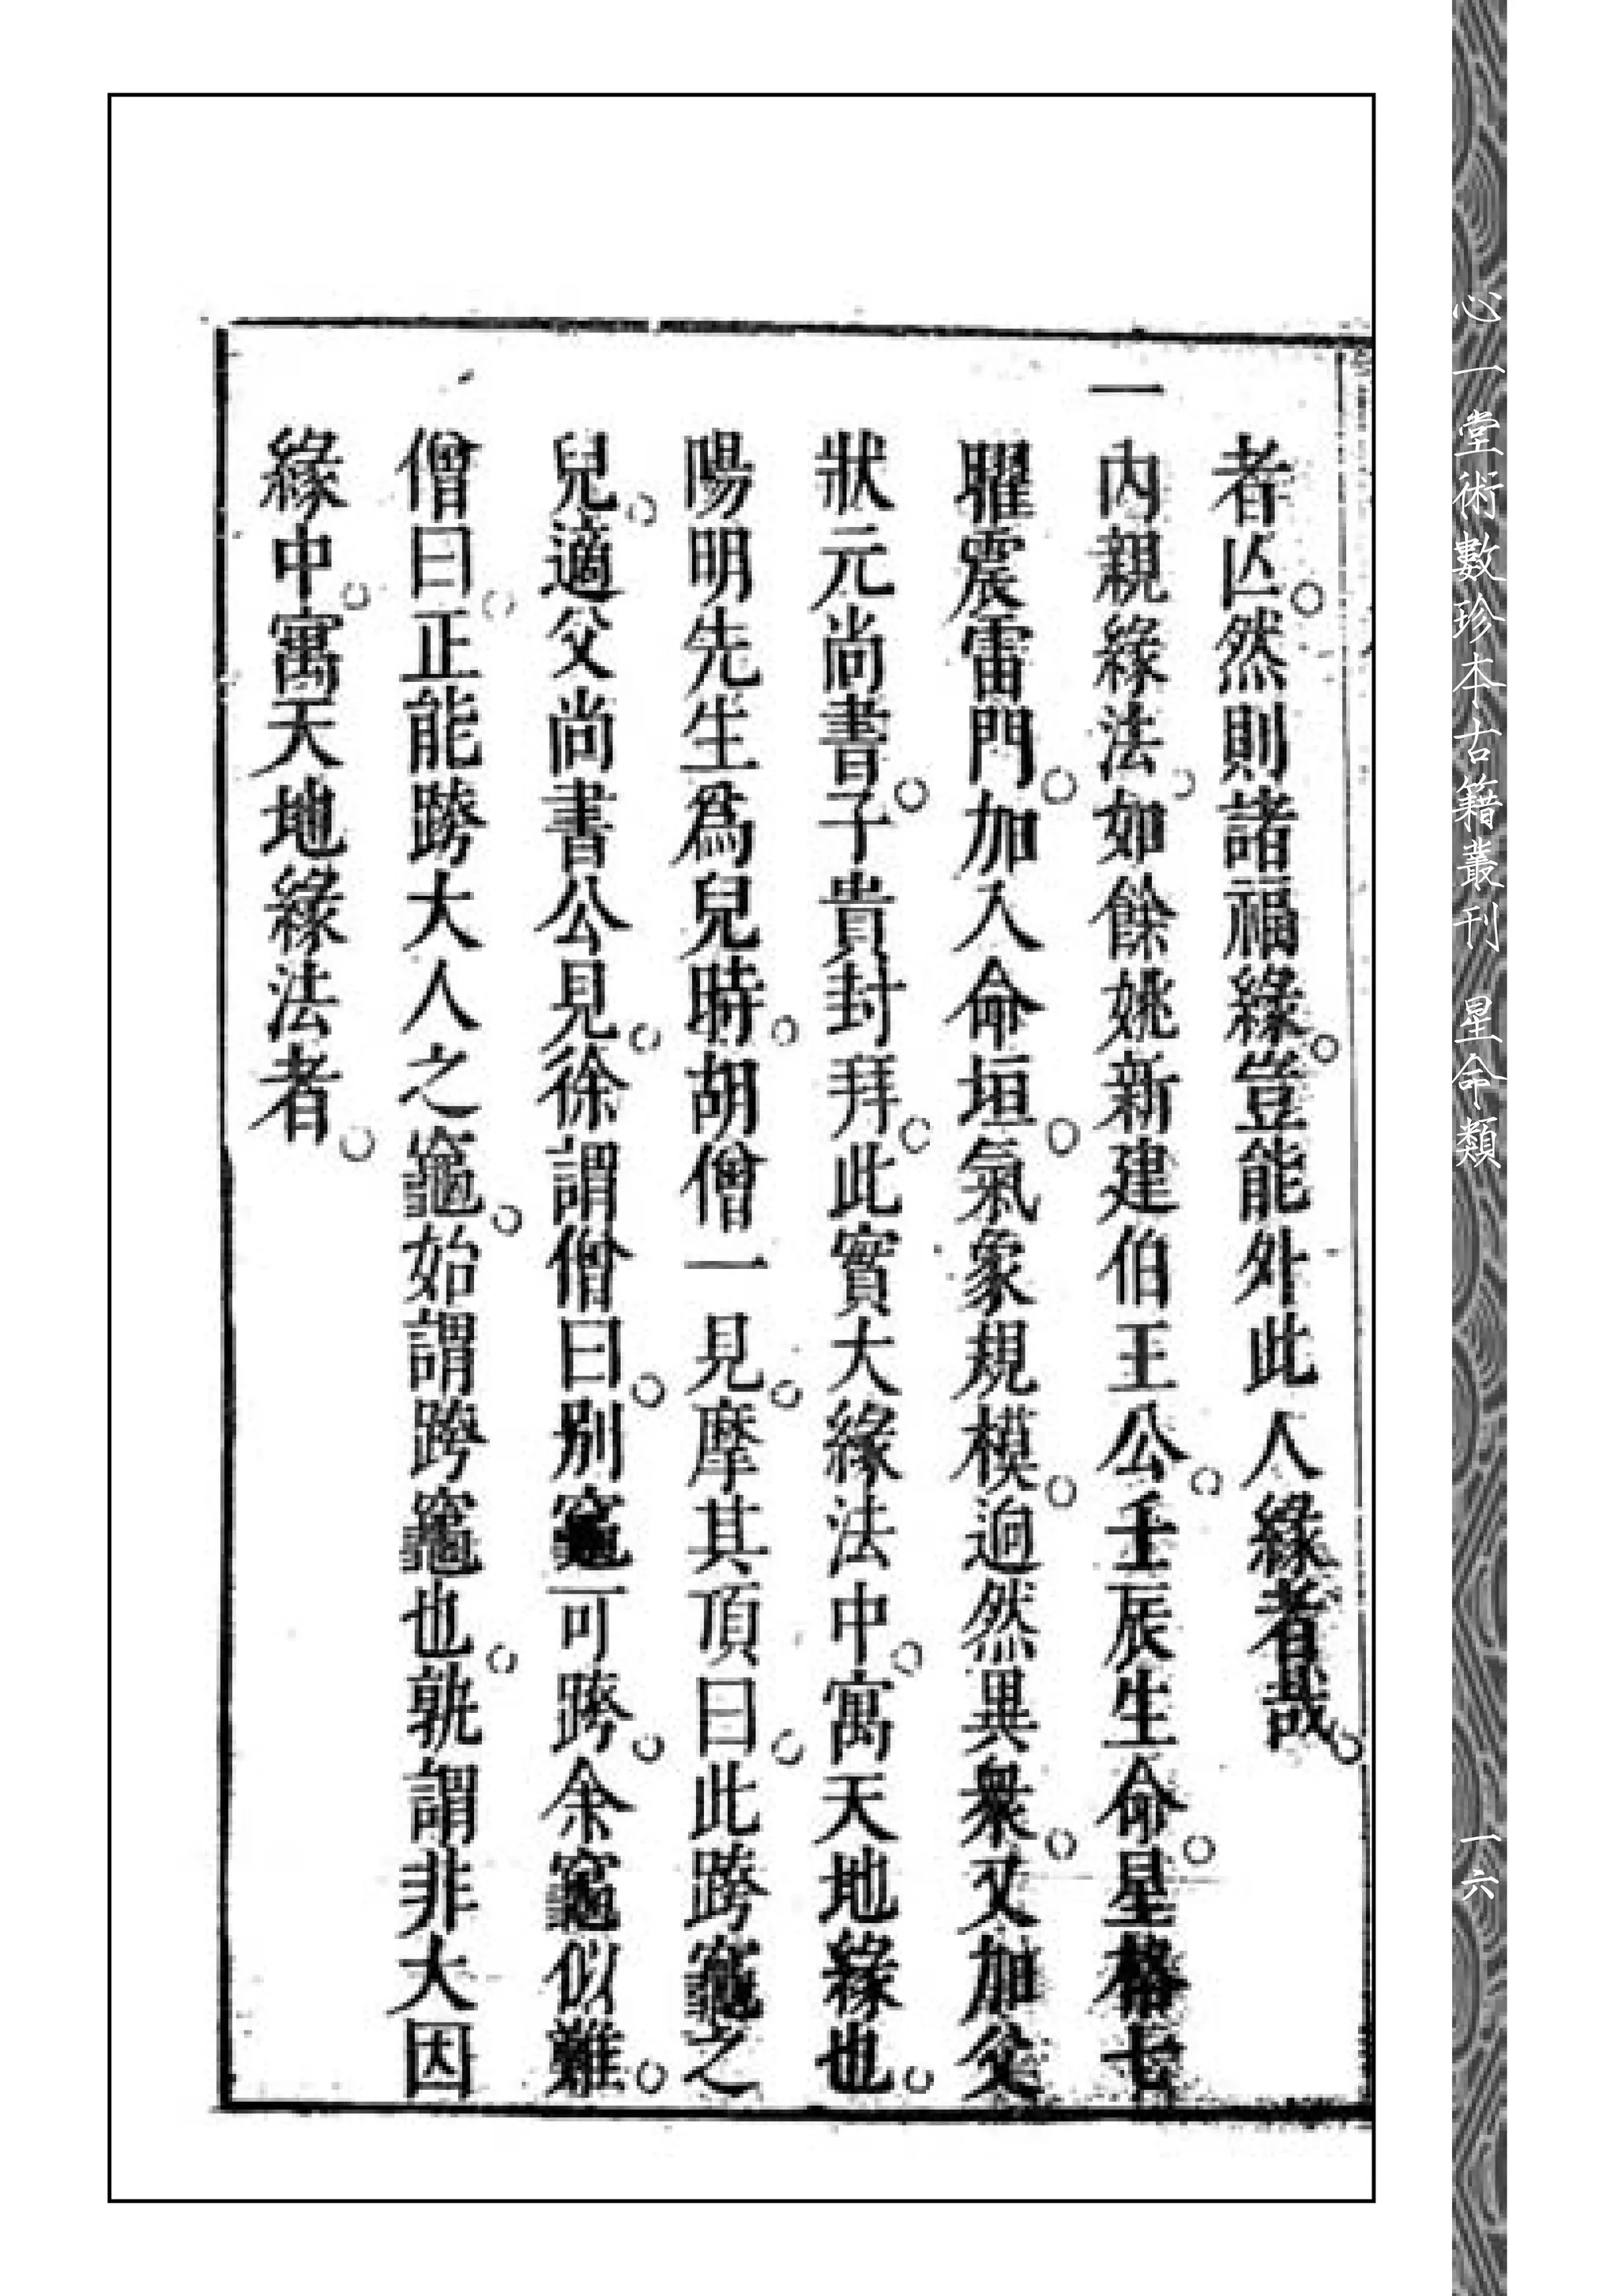 者亾。然則諸福緣。豈能外此人緣者哉。
一內親緣法。如餘姚新建伯王公。壬辰生命。星格七
曜震雷門。加入命垣。氣象規模。逈然異衆。又加父
狀元尚書。子貴封拜。此實大緣法中。寓天地緣也。
陽明先生爲兒時。胡僧一見。摩其頂曰。此跨竈之
兒。適父尚書公見。徐謂僧曰。别竈可跨。余竈似難。
僧曰。正能跨大人之竈。始謂跨竈也。孰謂非大因
緣中。寓天地緣法者。
心一堂術數珍本古籍叢刊 星命類
一六